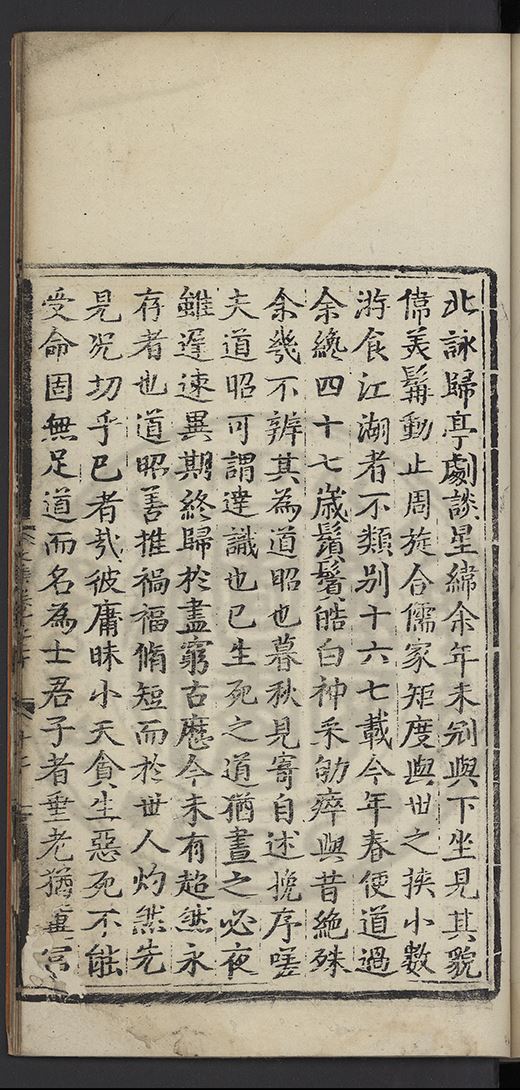 北詠歸亭劇談星緯余年未冠與下坐見其貌
偉美髯動止周旋合儒家矩度與世之挾小數
游食江湖者不類别十六七載今年春便道過
余纔四十七歲鬚鬢皓白神采劬瘁與昔絶殊
余幾不辨其為道昭也暮秋見寄自述挽序嗟
夫道昭可謂達識也已生死之道猶晝之必夜
雖遲速異期終歸於盡窮古歴今未有超然永
存者也道昭善推禍福脩短而於世人灼然先
見况切乎已者㢤彼庸昧小夫貪生惡死不能
受命固無足道而名為士君子者垂老猶